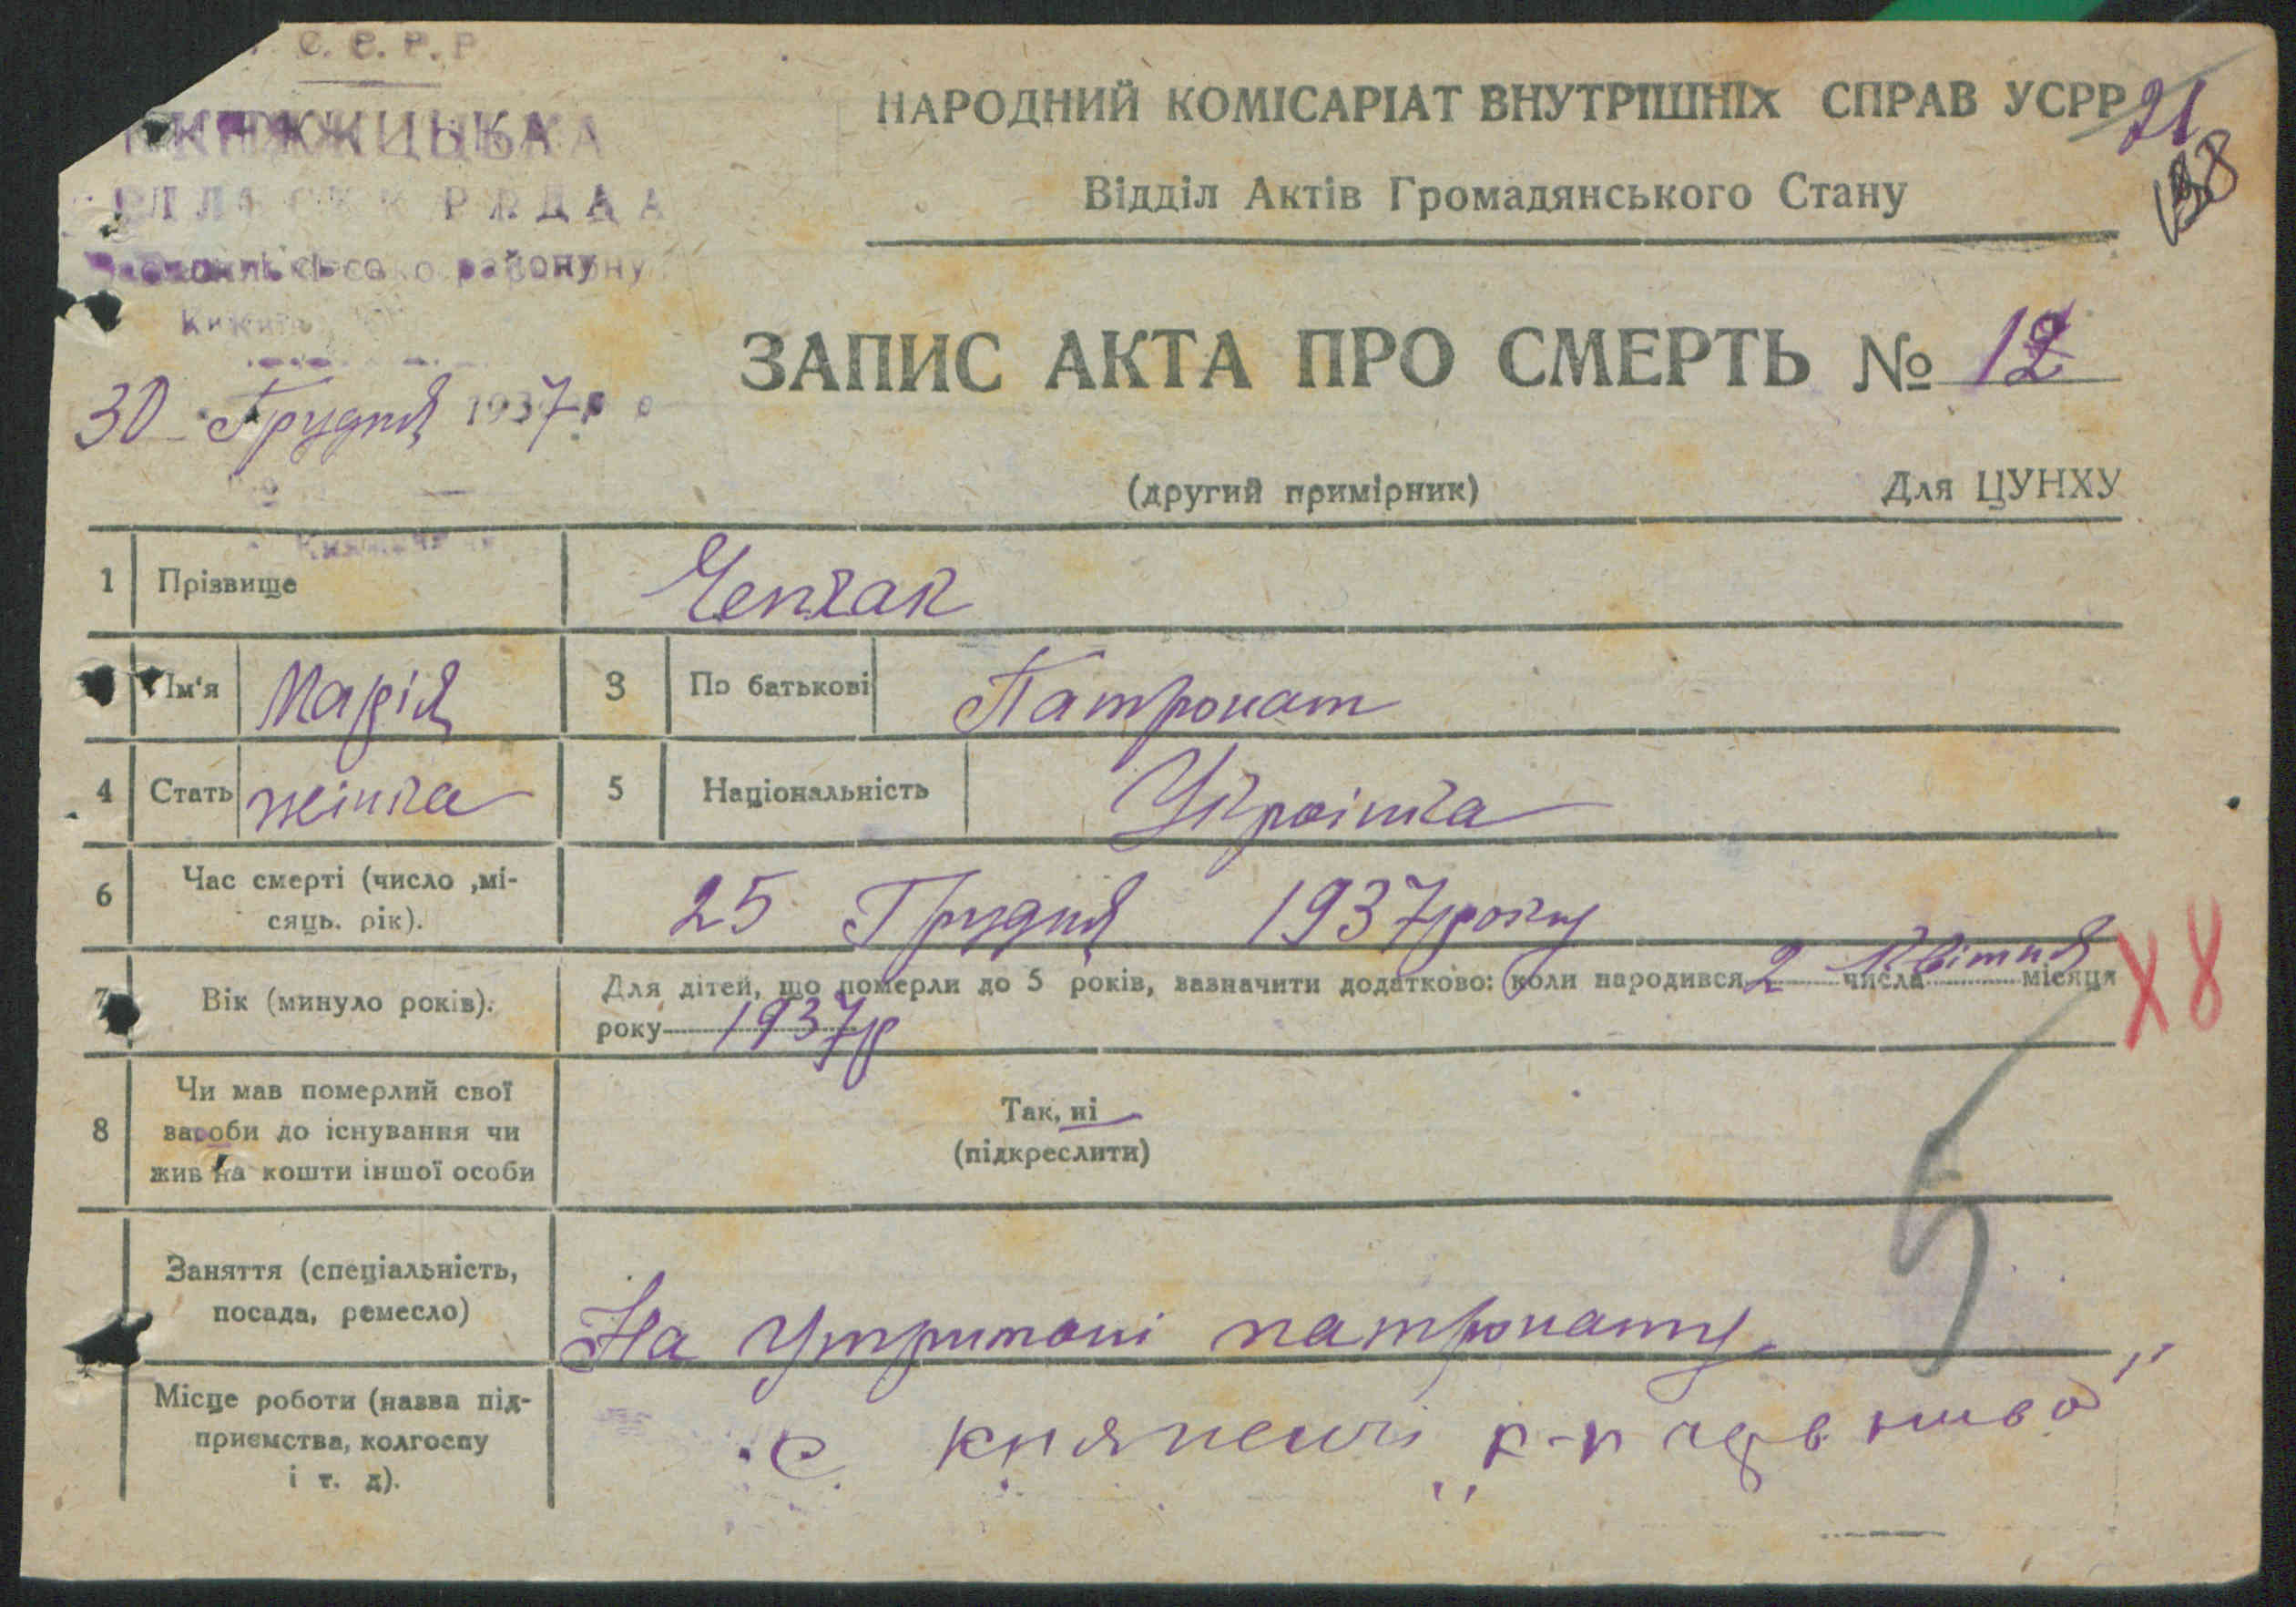 С. Е. Р. Р
КНЯЖИЦЬКА
РАДА
району
30 Грудня 1937 р
НАРОДНИЙ КОМІСАРІАТ ВНУТРІШНІХ СПРАВ УСРР
21
138
Відділ Актів Громадянського Стану
ЗАПИС АКТА ПРО СМЕРТЬ № 12
(другий примірник) Для ЦУНХУ
1 Прізвище Чепчак
Ім'я Марія 3 По батькові Патронат
4 Стать жінка 5 Національність Українка
6 Час смерті (число ,мі-
сяць. рік). 25 Грудня 1937 року
7 Вік (минуло років). Для дітей, що померли до 5 років, зазначити додатково: коли народився 2 числа Квітня місяця
року 1937 р
Х8
8 Чи мав померлий свої
засоби до існування чи
жив на кошти іншої особи
Так, ні
(підкреслити)
5
Заняття (спеціальність,
посада, ремесло)
На утримані патронату
Місце роботи (назва під-
приємства, колгоспу
і т. д).
с